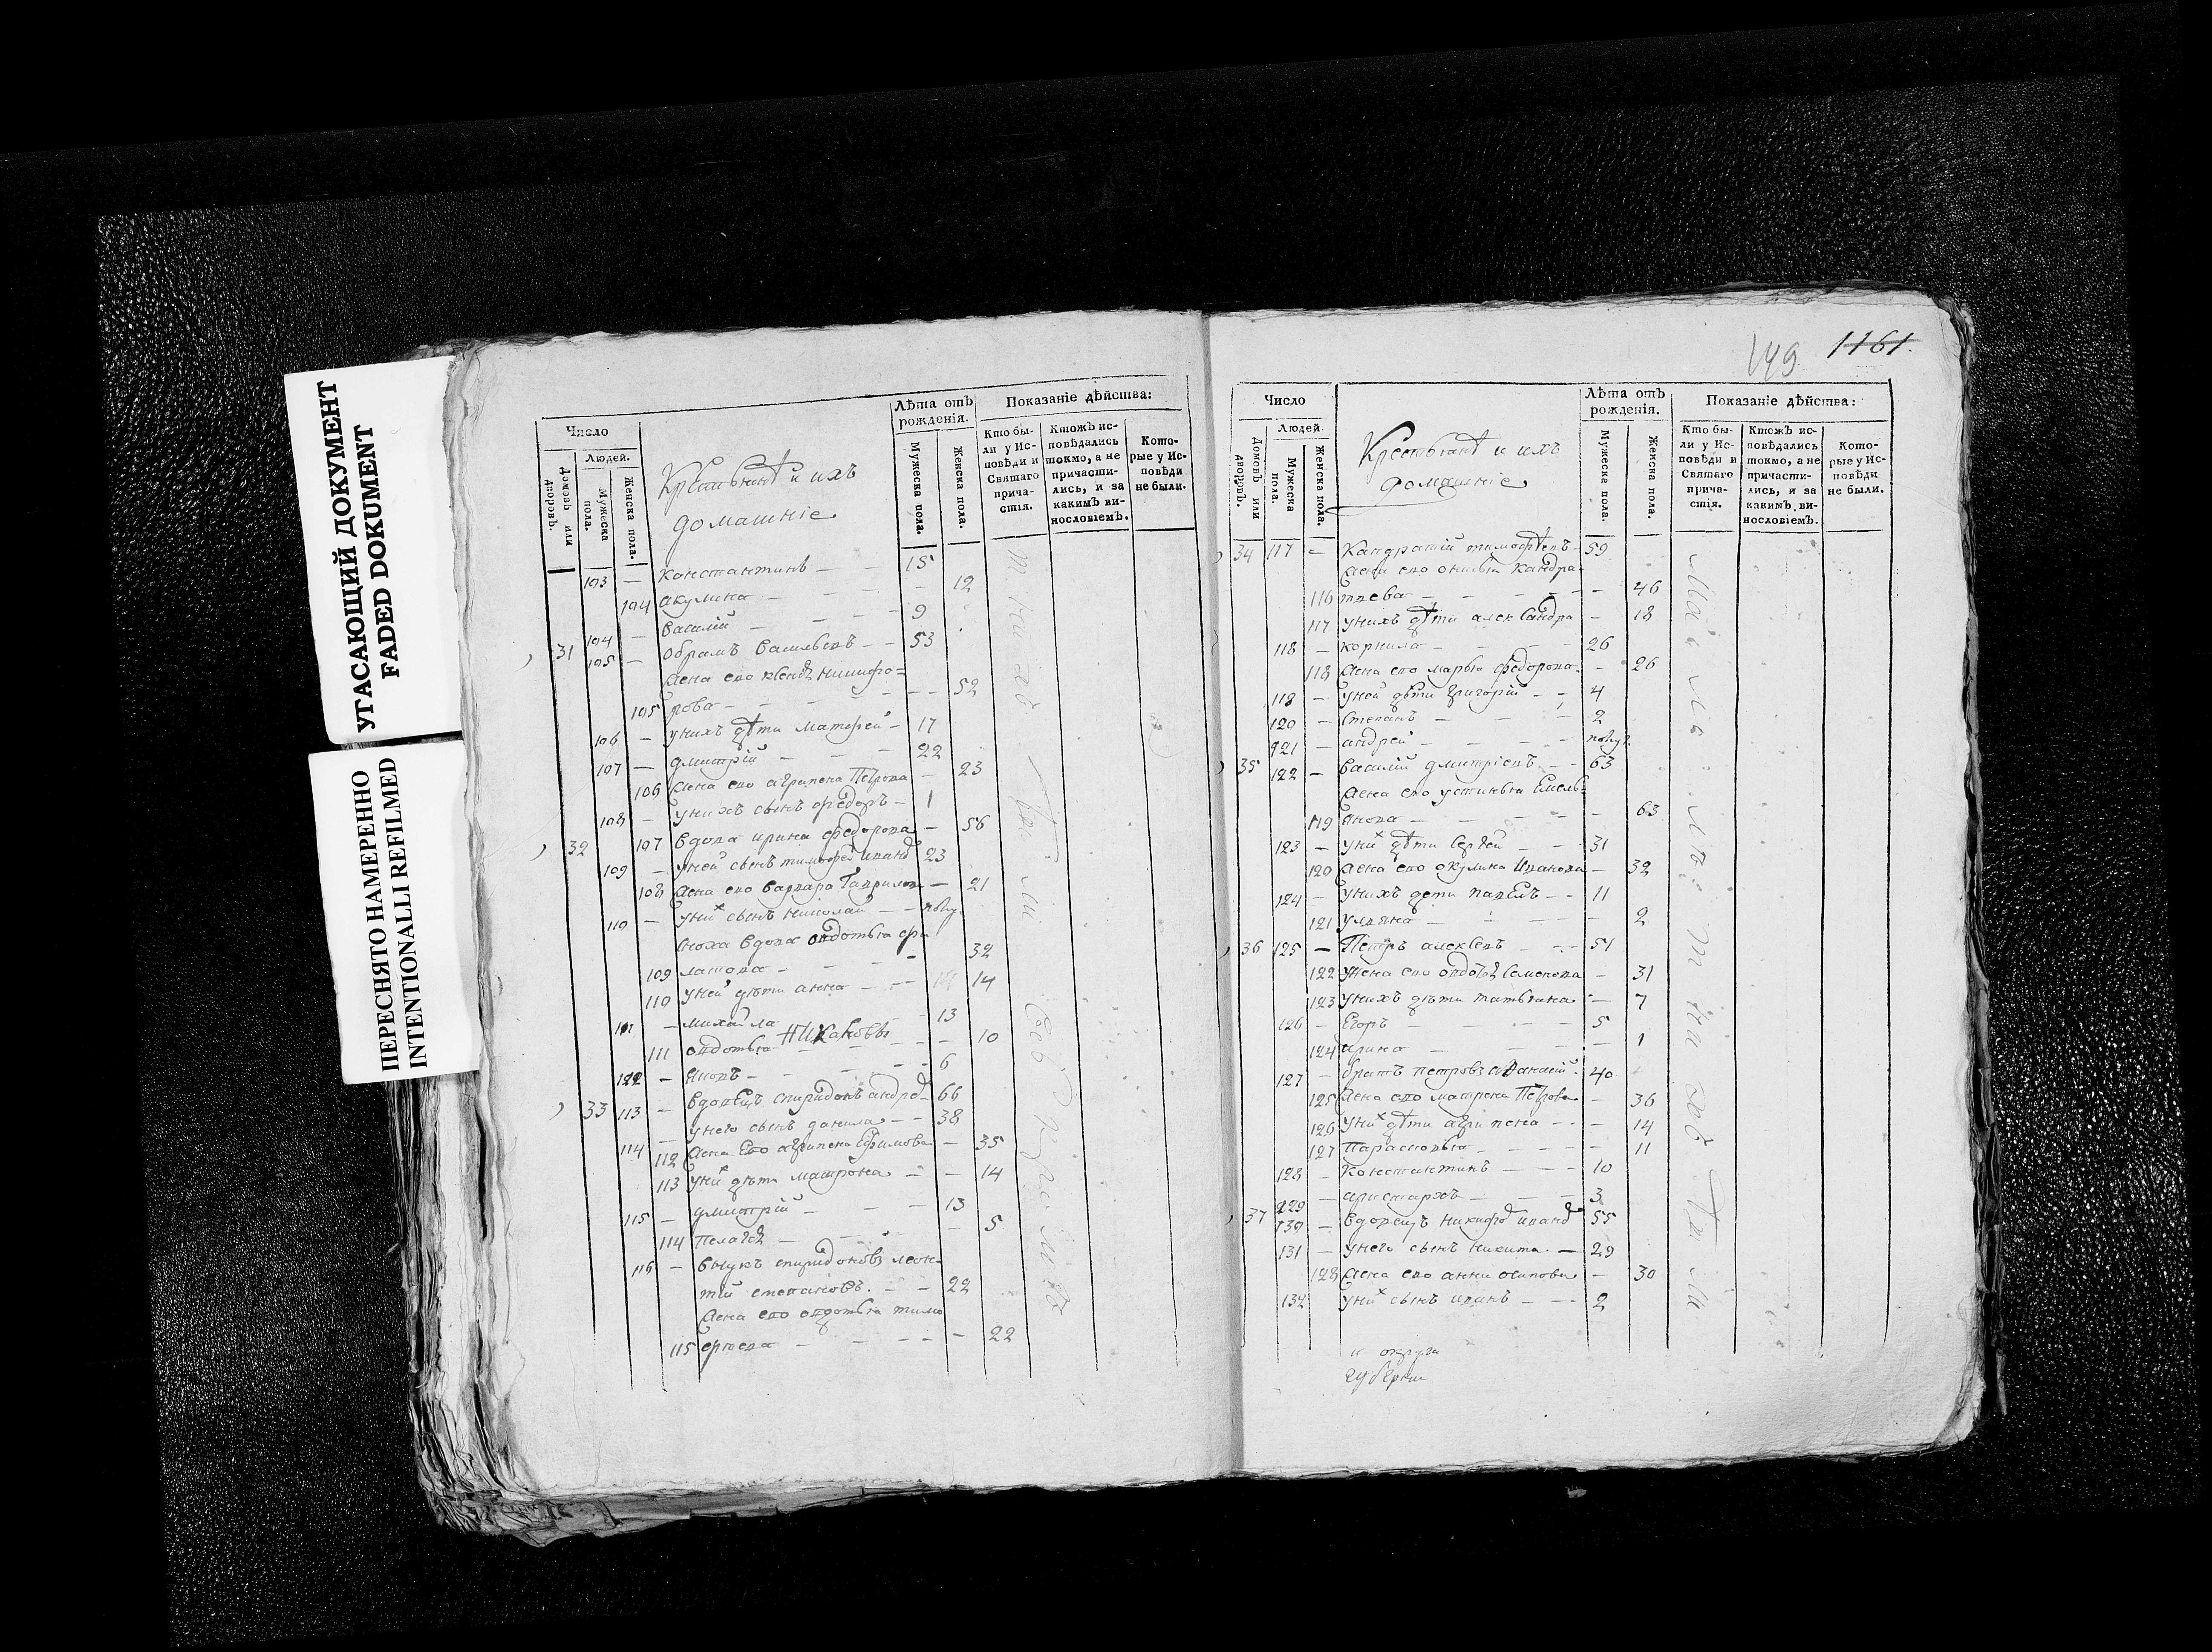 УГАСАЮЩИЙ ДОКУМЕНТ
FADED DOKUMENT
ПЕРЕСНЯТО НАМЕРЕННО
INTENTIONALLI REFILMED
Число
Людей.
Домовъ или дворовъ.
Мужеска пола.
Женска пола.
Крестьянѣ и ихъ
домашніе
Лѣта отъ рожденія.
Мужеска пола.
Женска пола.
Показаніе дѣйства:
Кто бы-
ли у Ис-
повѣди и
Святаго
прича-
стія.
Ктожъ ис-
повѣдались
токмо, а не
причасти-
лись, и за
какимъ ви-
нословіемъ.
Кото-
рые у Ис-
повѣди
не были.
103 — Константинъ — — 15
104 акулина — — — 12
104 — василій — — 9
31 105 — обрамъ васильевъ — — 53
жена ево никифо=
105 рова — — — 52
106 — унихъ дѣти матфей — 17
107 — дмитрій — — 22
106 жена ево агрипена Петрова — 23
108 — унихъ сынъ федоръ — 1
32 107 вдова ирина федорова — 56
109 — уней сынъ тимофей иванов 23
108 жена ево варвара Гаврилова — 21
110 — униx сынъ николай — — полу
вдова овдотья фи
109 латова — — — 32
110 уней дѣти анна — — 14
111 — михайла — 13
Никановы
111 овдотья — — — 10
112 — яковъ — — — 6
33 113 — вдовецъ спиридонъ андре 66
114 — унего сынъ данила — — 38
112 жена Ево агрипена Ефимова — 35
113 униx дѣти матрона — — 14
115 — дмитрій — — — 13
114 пелагея — — — 5
116 — внукъ спиридоновъ леон-
тій степановъ. — — 22
жена ево овдотья тимо
115 фѣева — — — 22
149 1161.
Число
Людей.
Домовъ или дворовъ.
Мужеска пола.
Женска пола.
Крестьянѣ и ихъ
домашніе
Лѣта отъ рожденія.
Мужеска пола.
Женска пола.
Показаніе дѣйства:
Кто бы-
ли у Ис-
повѣди и
Святаго
прича-
стія.
Ктожъ ис-
повѣдались
токмо, а не
причасти-
лись, и за
какимъ ви-
нословіемъ.
Кото-
рые у Ис-
повѣди
не были.
34 117 — Кандратій тимофѣевъ — 59
жена ево онисья кандра-
116 тьева — — — — 46
117 унихъ дѣти александра — 18
118 — корнила — — — 26
118 жена ево марья федорова — 26
119 — уней дѣти григорій — — 4
120 — степанъ — — 2
121 — андрей — — — полуг.
35 122 — василій дмитріевъ — — 63
жена ево устинья Емель=
119 янова — — — — 63
123 — униx дѣти Сергей — — 31
120 жена ево окулина Иванова — 32
124 — унихъ дети павелъ — — 11
121 ульяна — — — — 2
36 125 — Петръ алексеевъ — — 51
122 жена ево овдотья Семенова — 31
123 унихъ дѣти татьяна — 7
126 — Егоръ — — — 5
124 ирина — — — 1
127 — братъ петровъ афанасий 40
125 жена ево матрена Петрова — 36
126 униx дѣти агрипена — — — 14
127 Парасковья — — — — 11
128 — Константинъ — — — 10
129 — аристархъ — — — 3
37 130 — вдовецъ никифор иванов 55
131 — унего сынъ никита. — 29
128 жена ево анна осипова — 30
132 униx сынъ иванъ — — 2
и округи
губерни